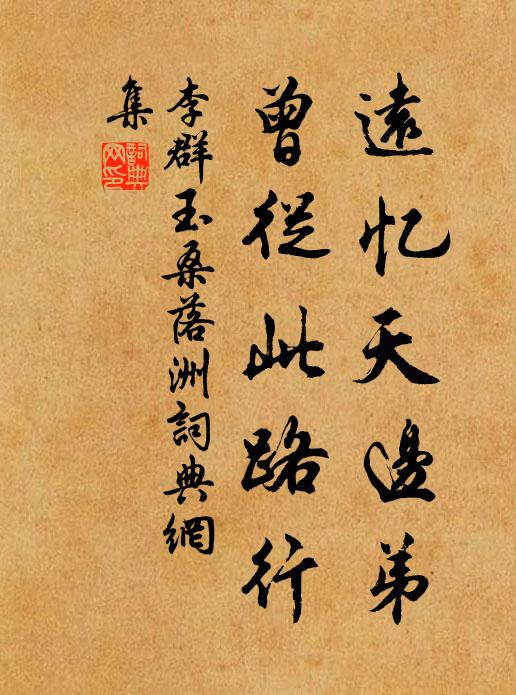 遠忆天邊弟
曾從此路行
李群玉桑落洲詞典網
集
詞典网印